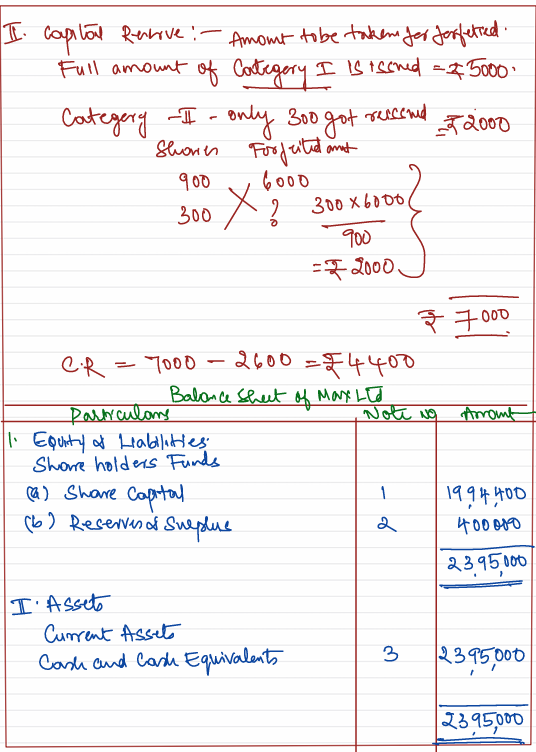 II. Capital Reserve :— Amount to be taken for forfeited.
Full amount of Category I is issued = ₹5000.
Category -II - only 300 got reissued = ₹2000
Shares Forfeited amt
900 6000
300 ? 300 x 6000
900
= ₹ 2000
₹ 7000
C.R = 7000 - 2600 = ₹4400
Balance Sheet of Max Ltd
Particulars Note no Amount
1. Equity & Liabilities.
Share holders Funds
(a) Share Capital 1 19,94,400
(b) Reserves & Surplus 2 400000
23,95,000
II. Assets
Current Assets
Cash and Cash Equivalents 3 23,95,000
23,95,000